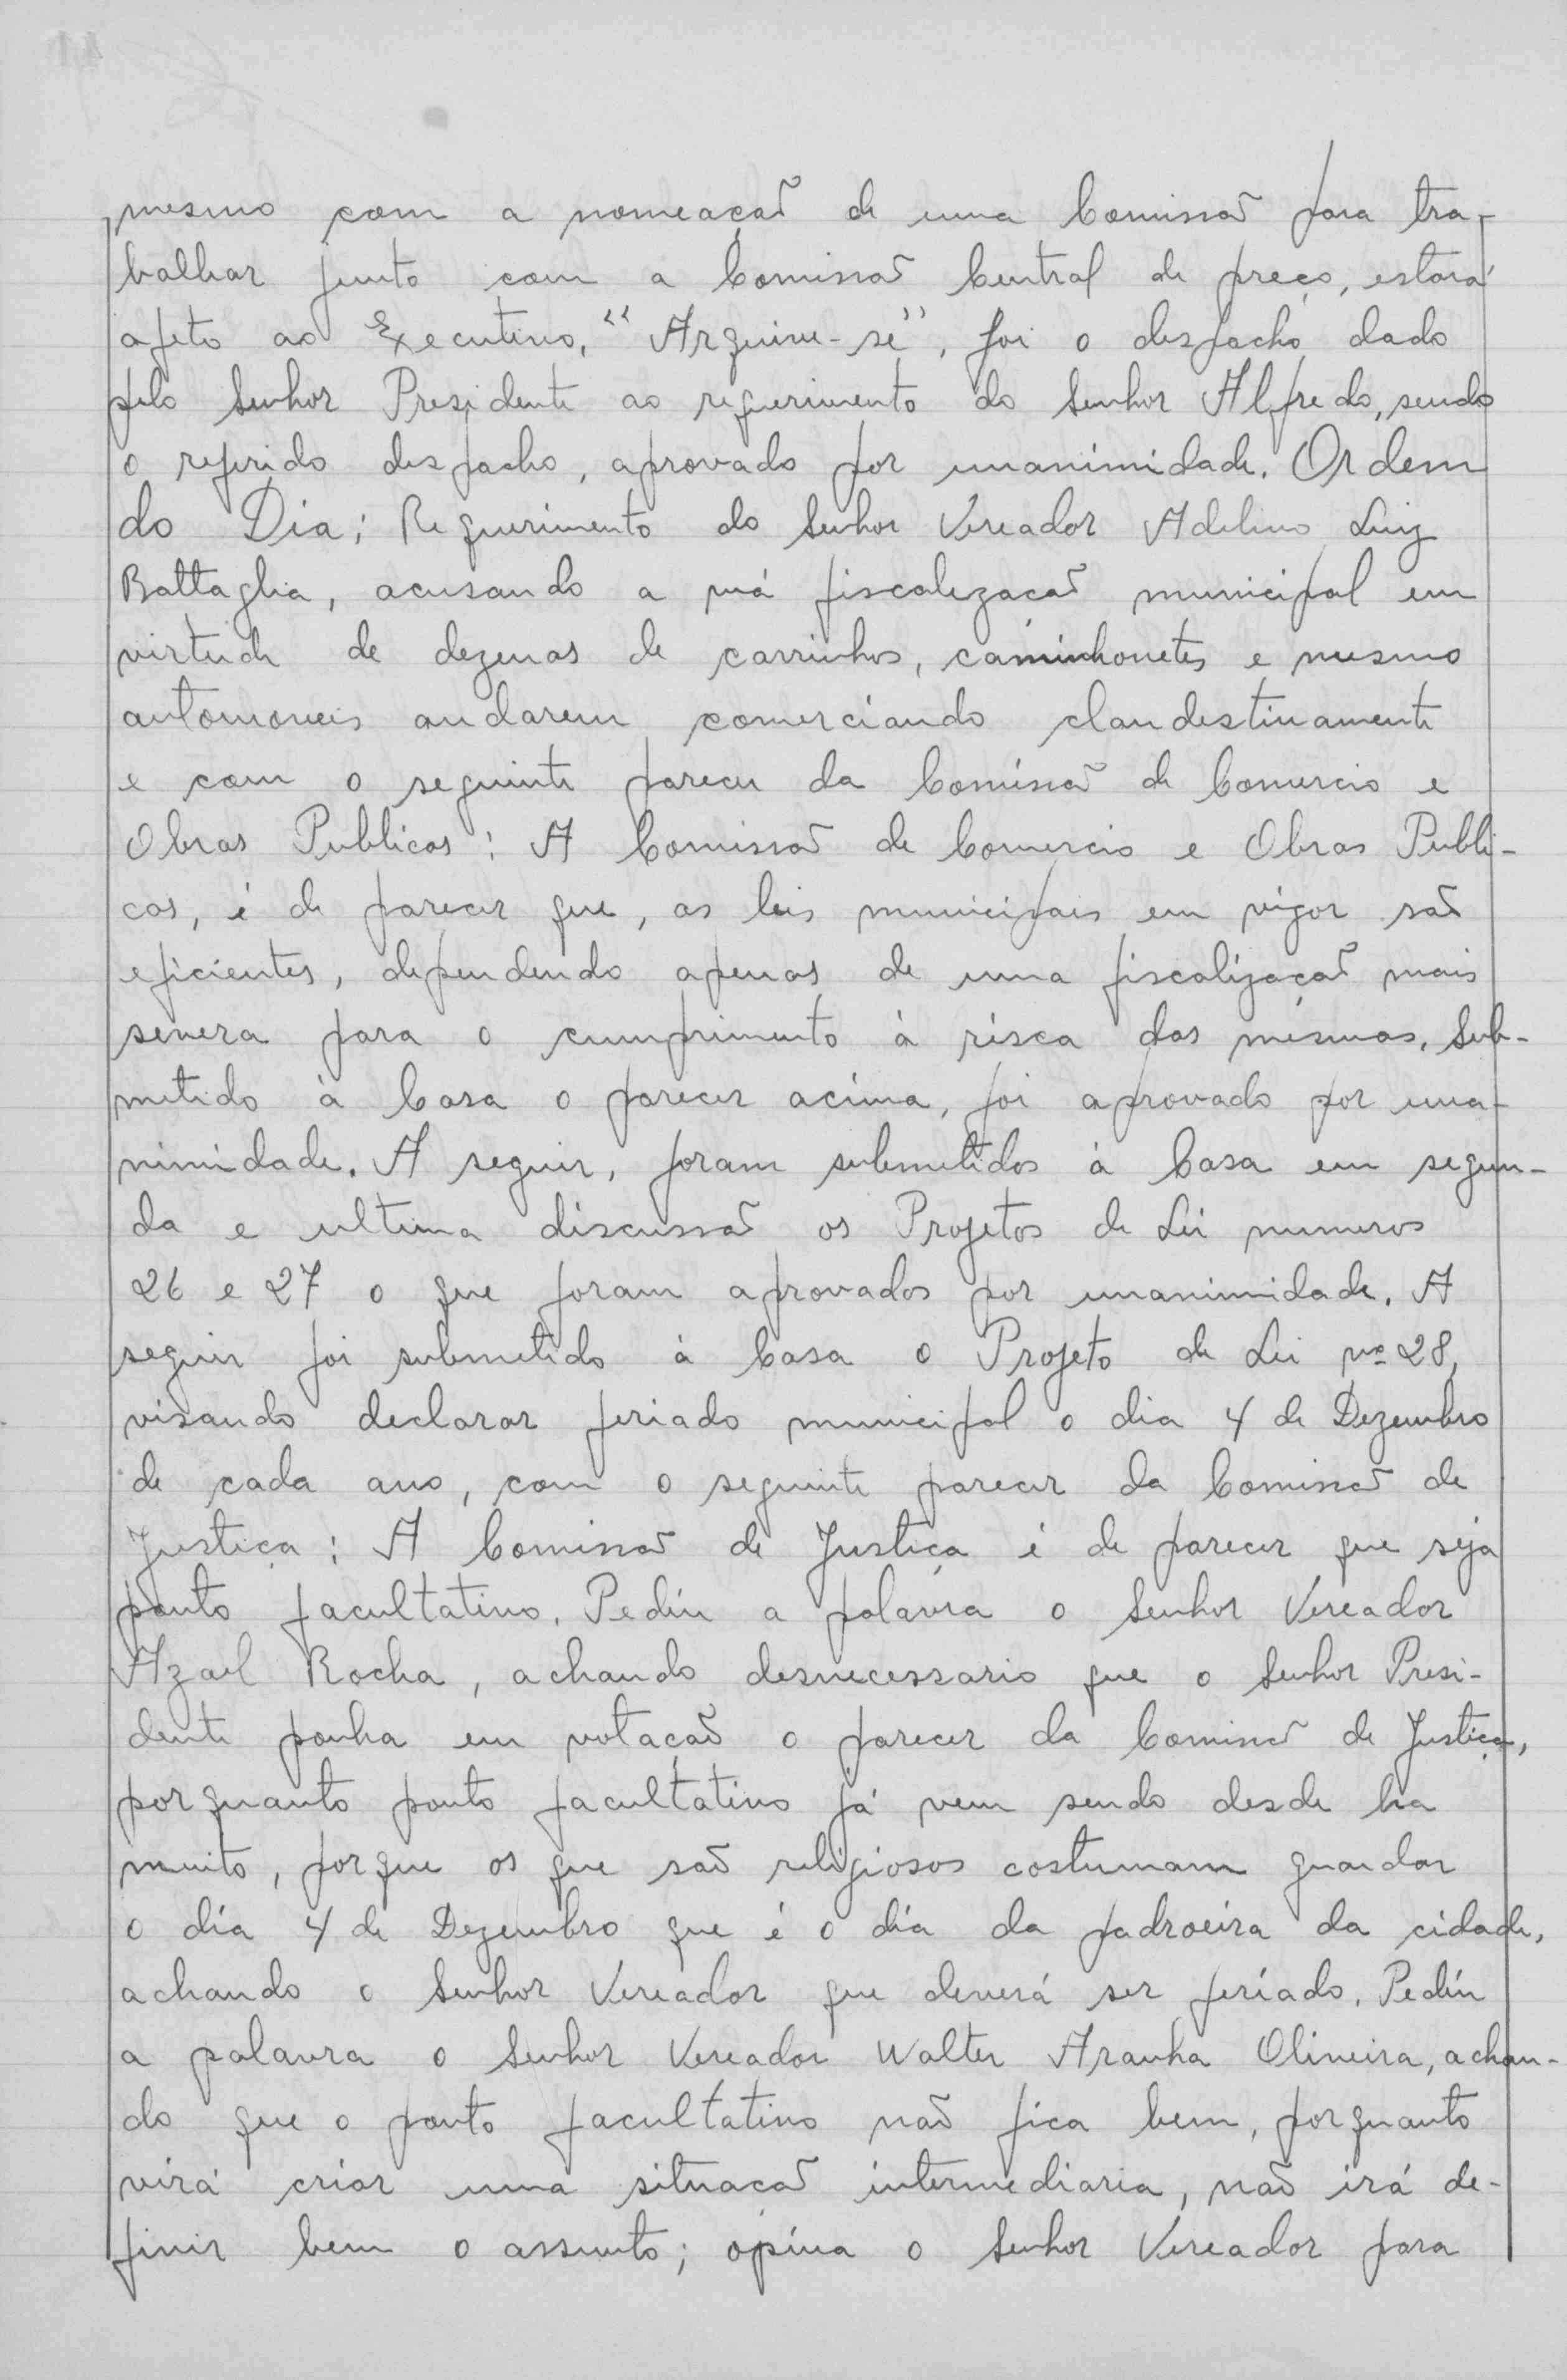 mesmo com a nomeação de uma Comissão para tra-
balhar junto com a Comissão Central de preço, estará
afeto ao Executivo. "Arquive-se", foi o despacho dado
pelo Senhor Presidente ao requerimento do Senhor Alfredo, sendo
o referido despacho, aprovado por unanimidade. Ordem
do Dia: Requerimento do Senhor Vereador Adelino Luiz
Battaglia, acusando a má fiscalezação municipal em
virtude de dezenas de carrinhos, caminhonetes e mesmo
automoveis andarem comerciando clandestinamente
e com o seguinte parecer da Comissão de Comercio e
Obras Publicas: A Comissão de Comercio e Obras Publi-
cas, é de parecer que, as leis municipais em vigor são
eficientes, dependendo apenas de uma fiscalização mais
severa para o cumprimento à risca das mesmas. Sub-
metido à Casa o parecer acima, foi aprovado por una-
nimidade. A seguir, foram submetidos à Casa em segun-
da e ultima discussão os Projetos de Lei numeros
26 e 27 o que foram aprovados por unanimidade. A
seguir foi submetido à Casa o Projeto de Lei nº 28,
visando declarar feriado municipal o dia 4 de Dezembro
de cada ano, com o seguinte parecer da Comissão de
Justiça: A Comissão de Justiça é de parecer que seja
ponto facultativo. Pediu a palavra o Senhor Vereador
Azael Rocha, achando desnecessario que o Senhor Presi-
dente ponha em votação o parecer da Comissão de Justiça,
porquanto ponto facultativo já vem sendo desde ha
muito, porque os que são religiosos costumam guardar
o dia 4 de Dezembro que é o dia da padroeira da cidade,
achando o Senhor Vereador que deverá ser feriado. Pediu
a palavra o Senhor Vereador Walter Aranha Oliveira, achan-
do que o ponto facultativo não fica bem, porquanto
virá criar uma situação intermediaria, não irá de-
finir bem o assunto; opina o Senhor Vereador para